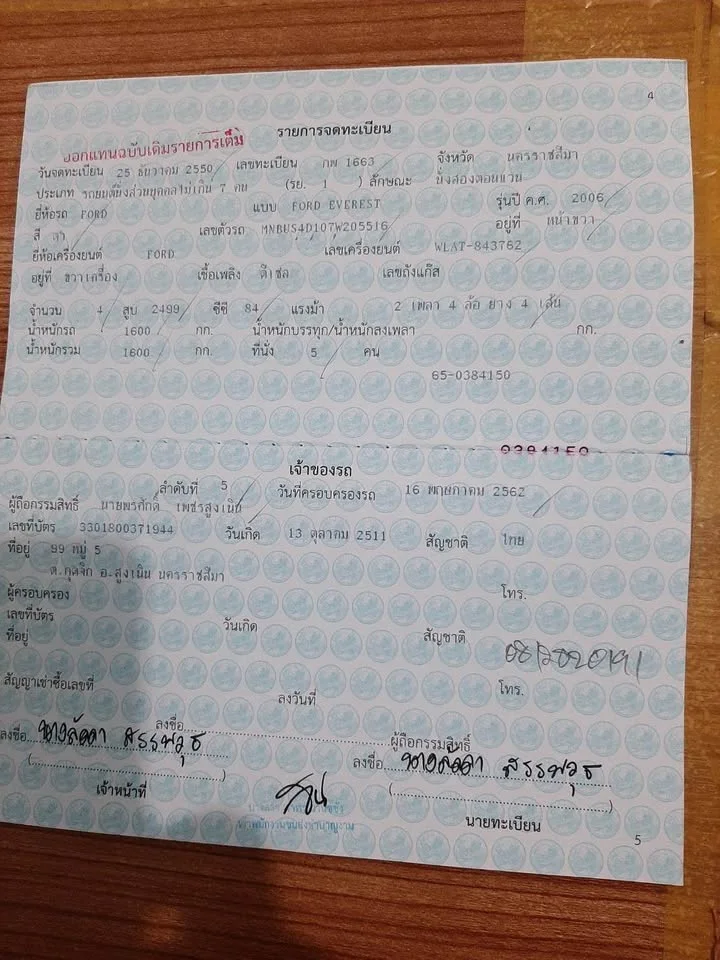 4
รายการจดทะเบียน
ออกแทนฉบับเดิมรายการเต็ม
วันจดทะเบียน 25 ธันวาคม 2550 เลขทะเบียน กพ 1663 จังหวัด นครราชสีมา
ประเภท รถยนต์นั่งส่วนบุคคลไม่เกิน 7 คน (รย. 1 ) ลักษณะ นั่งสองตอนแวน
ยี่ห้อรถ FORD แบบ FORD EVEREST รุ่นปี ค.ศ. 2006
สี เทา เลขตัวรถ MNBUS4D107W205516 อยู่ที่ หน้าขวา
ยี่ห้อเครื่องยนต์ FORD เลขเครื่องยนต์ WLAT-843762
อยู่ที่ ขวาเครื่อง เชื้อเพลิง ดีเซล เลขถังแก๊ส
จำนวน 4 สูบ 2499 ซีซี 84 แรงม้า 2 เพลา 4 ล้อ ยาง 4 เส้น
น้ำหนักรถ 1600 กก. น้ำหนักบรรทุก/น้ำหนักลงเพลา กก.
น้ำหนักรวม 1600 กก. ที่นั่ง 5 คน
65-0384150
0384150
เจ้าของรถ
ลำดับที่ 5 วันที่ครอบครองรถ 16 พฤษภาคม 2562
ผู้ถือกรรมสิทธิ์ นายพรศักดิ์ เพชรสูงเนิน
เลขที่บัตร 3301800371944 วันเกิด 13 ตุลาคม 2511 สัญชาติ ไทย
ที่อยู่ 99 หมู่ 5
ต.กุดจิก อ.สูงเนิน นครราชสีมา โทร.
ผู้ครอบครอง
เลขที่บัตร วันเกิด สัญชาติ
ที่อยู่
โทร.
สัญญาเช่าซื้อเลขที่ ลงวันที่
ลงชื่อ ผู้ถือกรรมสิทธิ์
ลงชื่อ สรรพวุธ ลงชื่อ สรรพวุธ
เจ้าหน้าที่ นายทะเบียน
5